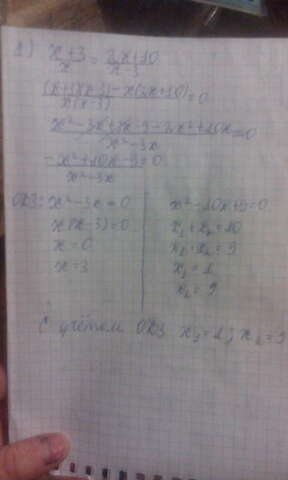 1) (x+3)/x = (2x+10)/(x-3)
((x+3)(x-3)-x(2x+10))/(x(x-3)) = 0
(x²-3x+3x-9-2x²+10x)/(x²-3x) = 0
(-x²+10x-9)/(x²-3x) = 0
ОДЗ: x²-3x=0
x(x-3)=0
x=0
x=3
x²-10x+9=0
x₁+x₂=10
x₁·x₂=9
x₁=1
x₂=9
С учётом ОДЗ x₁=1; x₂=9